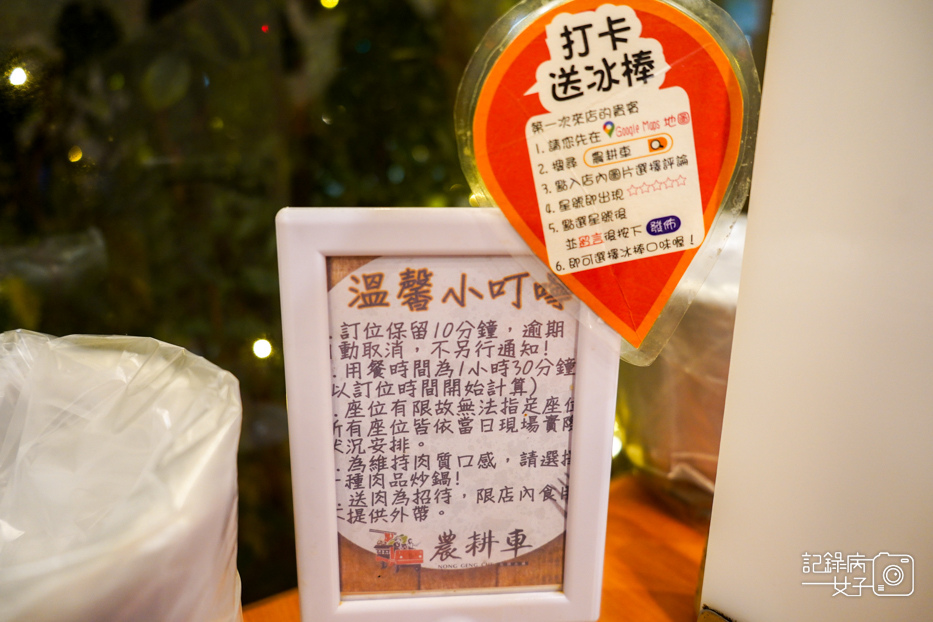 打卡
送冰棒
第一次來店的貴賓
1. 請您先在 Google Maps 地圖
2. 搜尋 農耕車
3. 點入店內圖片選擇評論
4. 星號即出現 ☆☆☆☆☆
5. 點選星號後
並留言後按下 發佈
6. 即可選擇冰棒口味喔！
溫馨小叮嚀
訂位保留10分鐘，逾期
動取消，不另行通知!
用餐時間為1小時30分鐘
以訂位時間開始計算)
座位有限故無法指定座位
所有座位皆依當日現場實際
狀況安排。
為維持肉質口感，請選擇
一種肉品炒鍋!
送肉為招待，限店內食用
不提供外帶。
農耕車
NONG GENG CHE
記錄病
女子